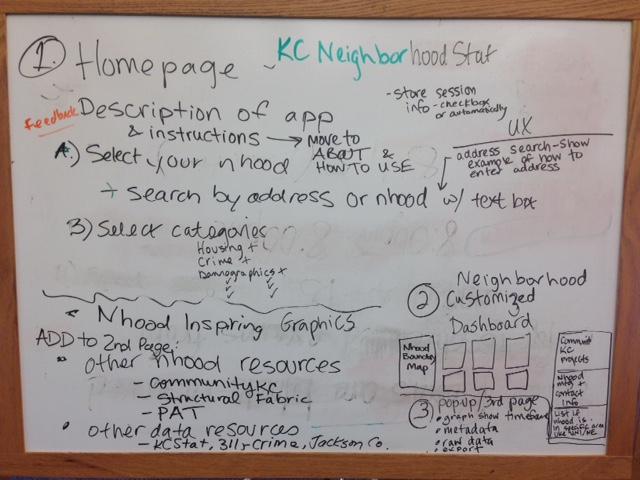 1. Homepage - KC Neighborhood Stat
- store session
info - checkbox
or automatically
Feedback
Description of app
& instructions → MOVE TO
ABOUT &
HOW TO USE
UX
address search - show
example of how to
enter address
A.) Select your nhood
+ search by address or nhood w/ text box
B) Select categories
Housing +
Crime +
Demographics +
• Nhood Inspiring Graphics
ADD to 2nd Page:
• other nhood resources
- CommunityKC
- Structural Fabric
- PAT
• other data resources
- KCStat, 311, Crime, Jackson Co.
2 Neighborhood
Customized
Dashboard
Nhood
Boundary
Map
Communit
KC
projects
Nhood
mtg +
contact
info
List if
nhood is
in specific area
like
3 popup/3rd page
• graph show timebase
• metadata
• raw data
• export